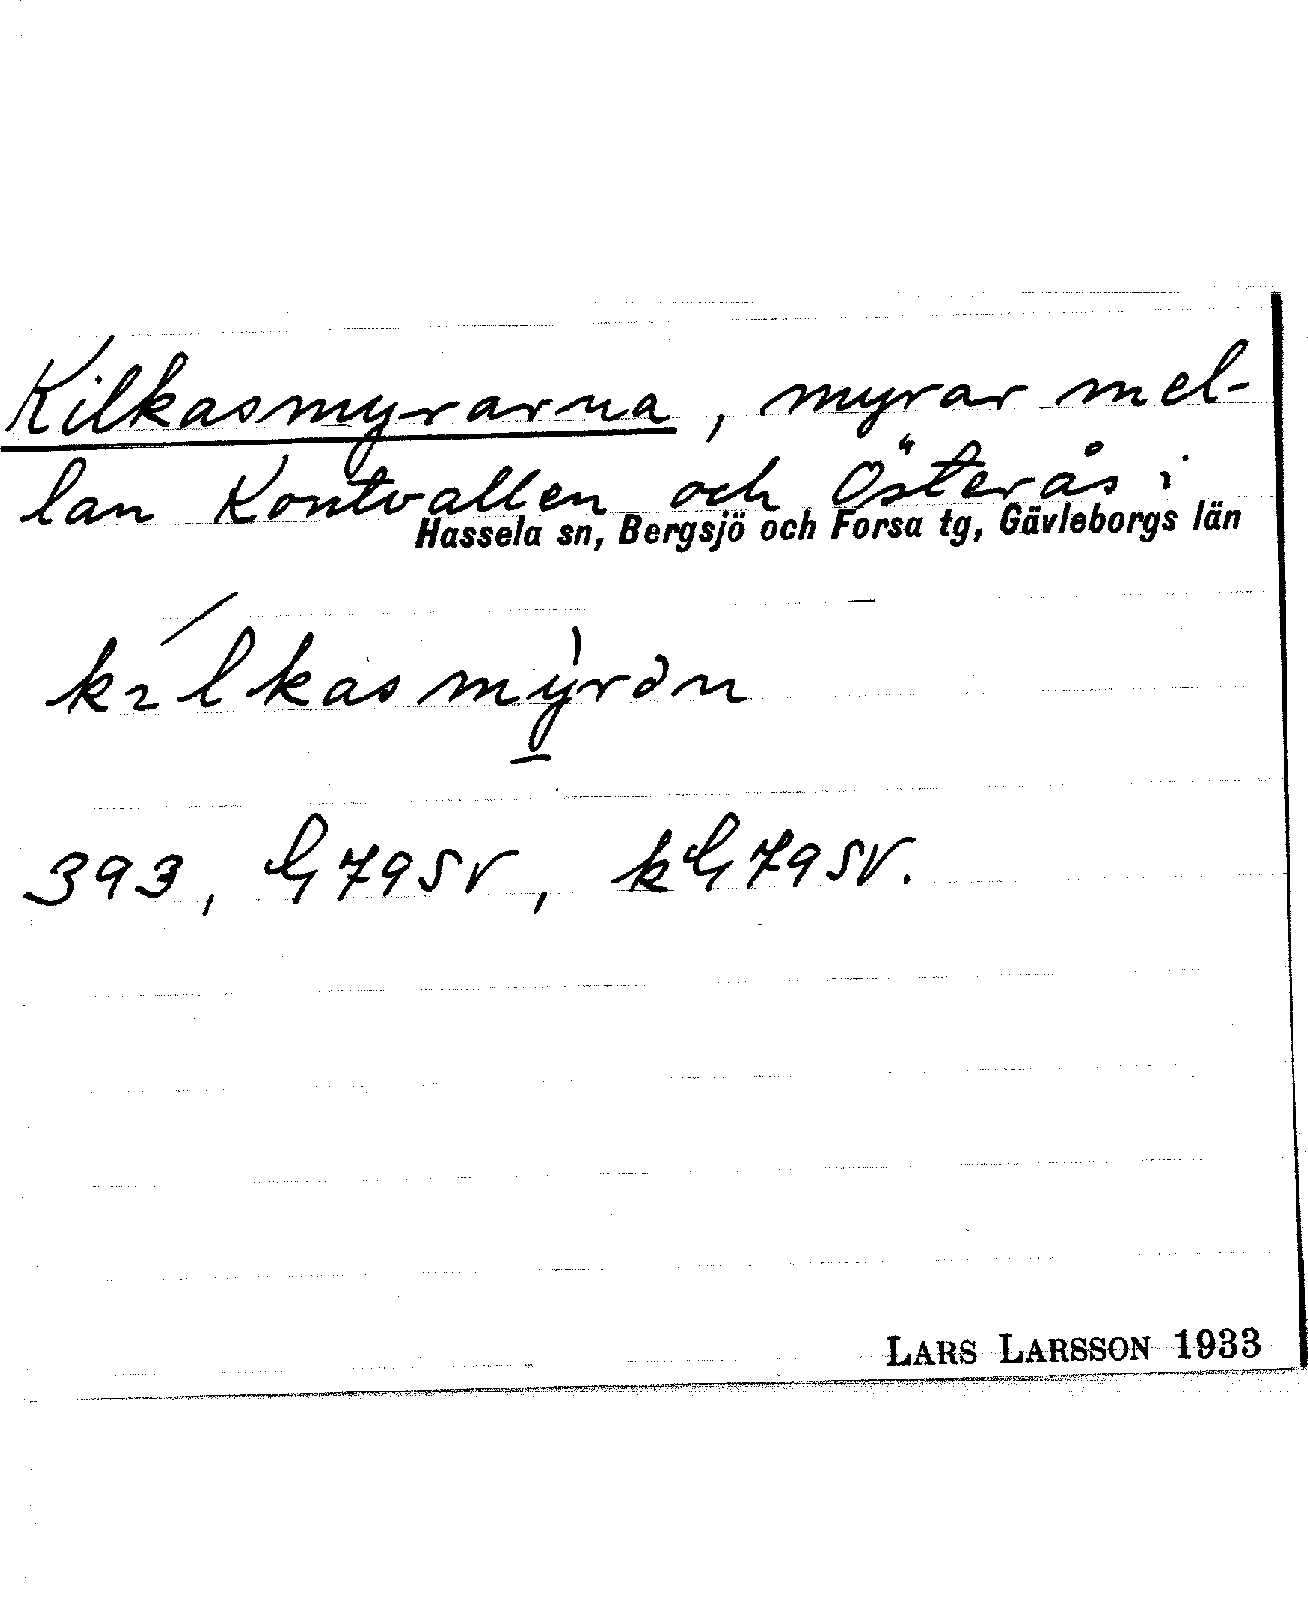 Kilkasmyrarna, myrar mel-
lan Kontvallen och Österås i
Hassela sn, Bergsjö och Forsa tg, Gävleborgs län
kílkasmỳrən
393, G79SV, kG79SV.
LARS LARSSON 1933